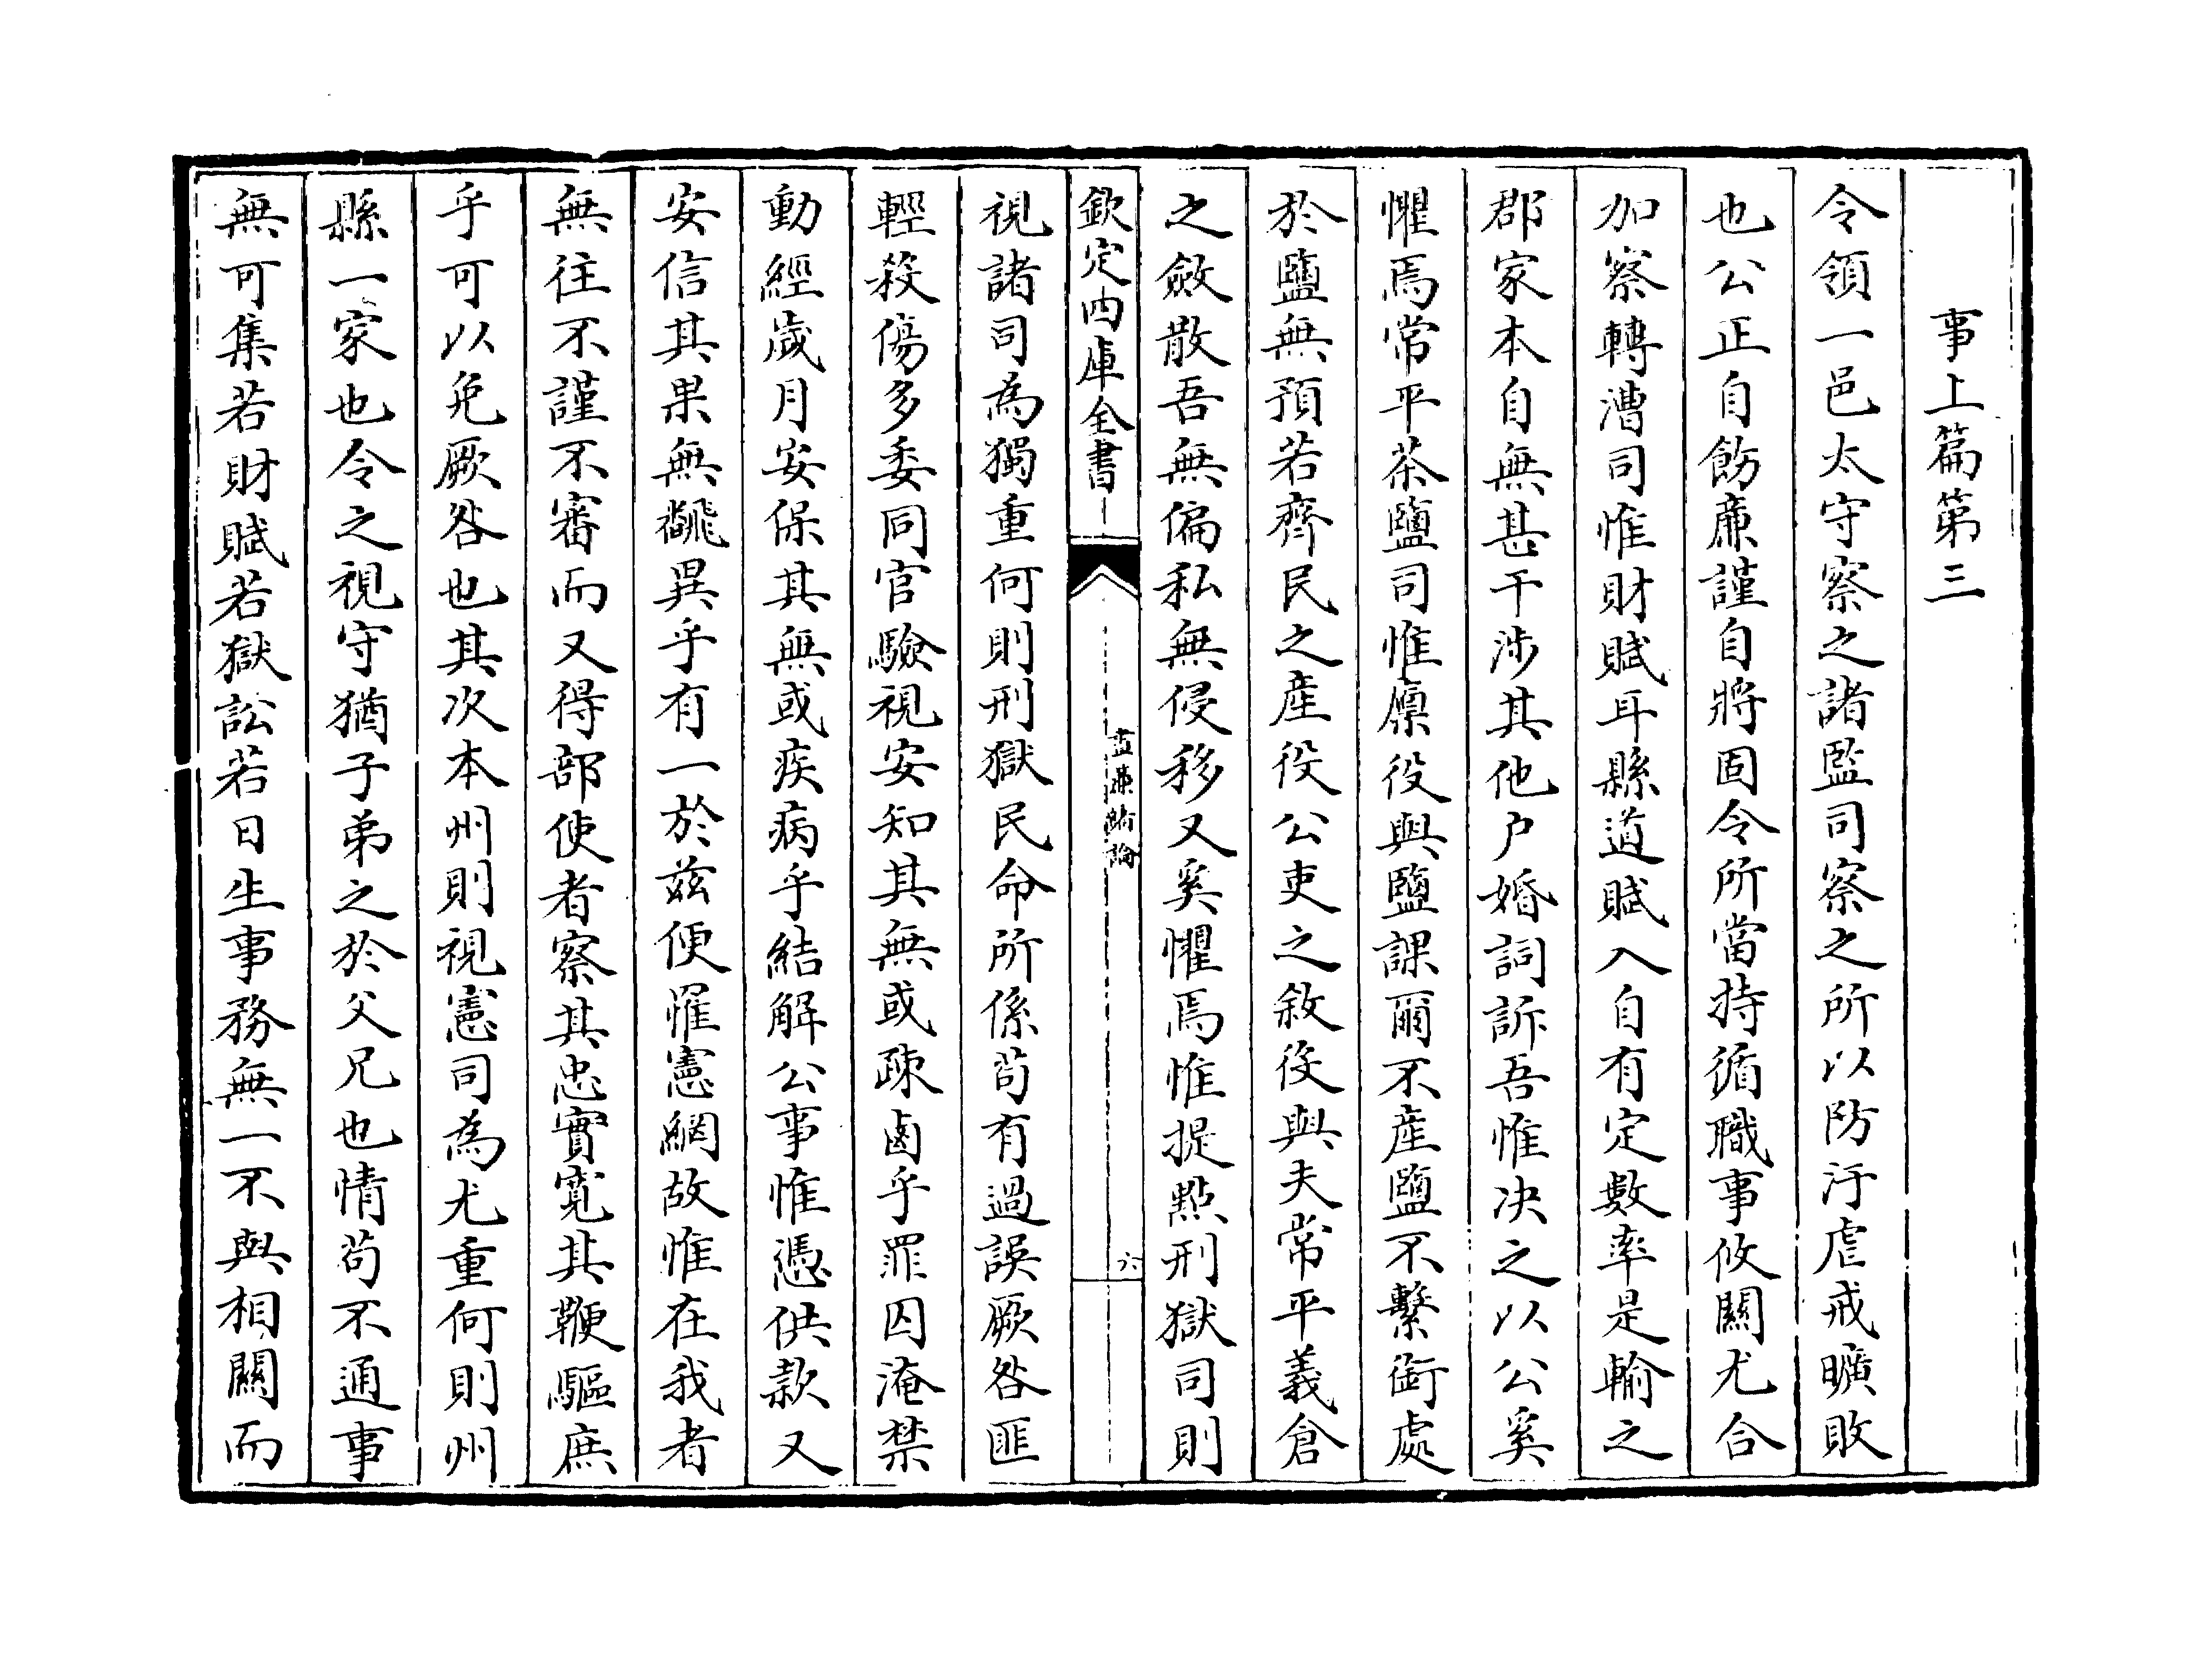 事上篇第三
令領一邑太守察之諸監司察之所以防汙虐戒曠敗
也公正自飭廉謹自將固令所當持循職事攸關尤合
加察轉漕司惟財賦耳縣道賦入自有定數率是輸之
郡家本自無甚干涉其他户婚詞訴吾惟决之以公奚
懼焉常平茶鹽司惟廪役與鹽課爾不產鹽不繫銜處
於鹽無預若齊民之產役公吏之敘役與夫常平義倉
之斂散吾無偏私無侵移又奚懼焉惟提點刑獄司則
欽定四庫全書
晝簾緒論
六
視諸司為獨重何則刑獄民命所係茍有過誤厥咎匪
輕殺傷多委同官驗視安知其無或疎鹵乎罪囚淹禁
動經歲月安保其無或疾病乎結解公事惟憑供款又
安信其果無飜異乎有一於兹便罹憲網故惟在我者
無往不謹不審而又得部使者察其忠實寛其鞭驅庶
乎可以免厥咎也其次本州則視憲司為尤重何則州
縣一家也令之視守猶子弟之於父兄也情茍不通事
無可集若財賦若獄訟若日生事務無一不與相關而